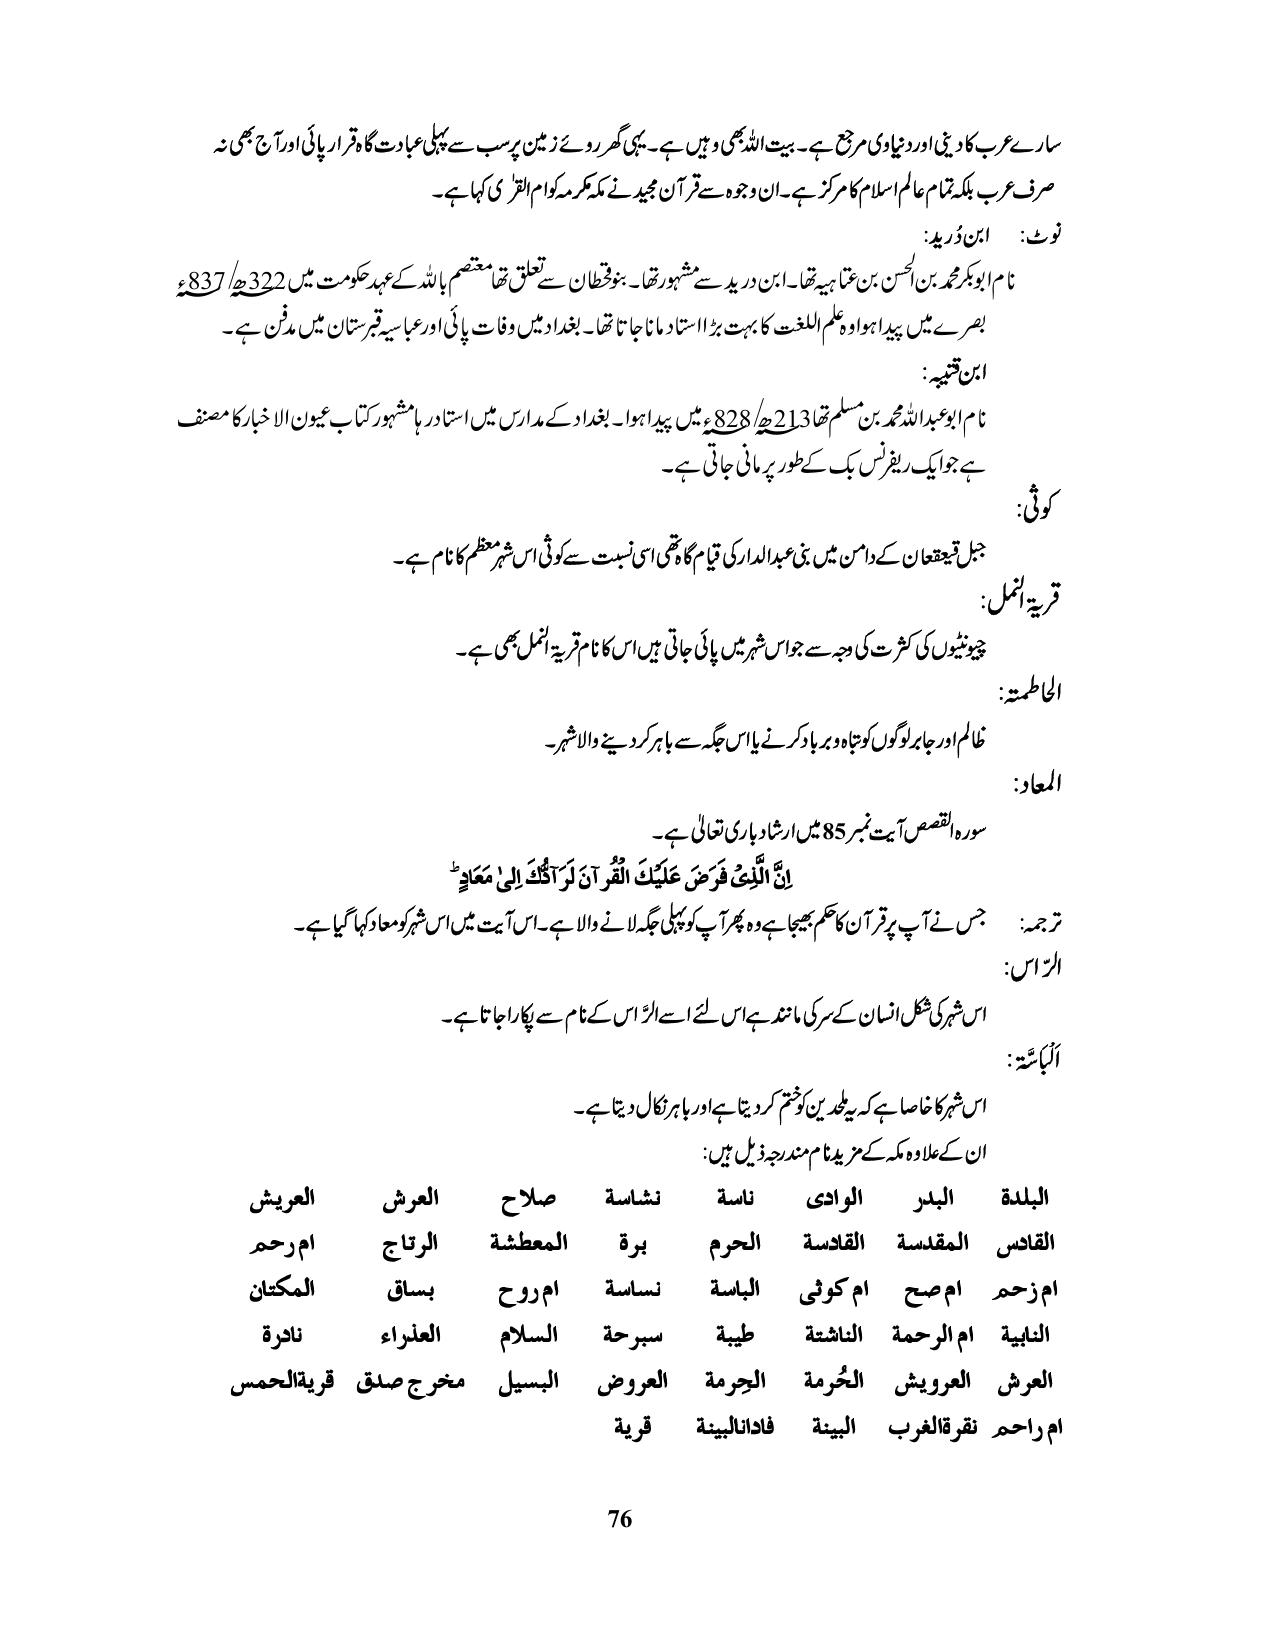 سارے عرب کا دینی اور دنیاوی مرجع ہے۔ بیت اللہ بھی وہیں ہے۔ یہی گھر روئے زمین پر سب سے پہلی عبادت گاہ قرار پائی اور آج بھی نہ
صرف عرب بلکہ تمام عالم اسلام کا مرکز ہے۔ ان وجوہ سے قرآن مجید نے مکہ مکرمہ کو ام القرٰی کہا ہے۔
نوٹ: ابن دُرید:
نام ابوبکر محمد بن الحسن بن عتاہیہ تھا۔ ابن درید سے مشہور تھا۔ بنو قحطان سے تعلق تھا معتصم باللہ کے عہد حکومت میں 322ھ/837ء
بصرے میں پیدا ہوا وہ علم اللغت کا بہت بڑا استاد مانا جاتا تھا۔ بغداد میں وفات پائی اور عباسیہ قبرستان میں مدفن ہے۔
ابن قتیبہ:
نام ابو عبداللہ محمد بن مسلم تھا 213ھ/828ء میں پیدا ہوا۔ بغداد کے مدارس میں استاد رہا مشہور کتاب عیون الاخبار کا مصنف
ہے جو ایک ریفرنس بک کے طور پر مانی جاتی ہے۔
کوثی:
جبل قیعقعان کے دامن میں بنی عبدالدار کی قیام گاہ تھی اسی نسبت سے کوثی اس شہر معظم کا نام ہے۔
قریۃ النمل:
چیونٹیوں کی کثرت کی وجہ سے جو اس شہر میں پائی جاتی ہیں اس کا نام قریۃ النمل بھی ہے۔
الحاطمتہ:
ظالم اور جابر لوگوں کو تباہ و برباد کرنے یا اس جگہ سے باہر کر دینے والا شہر۔
المعاد:
سورہ القصص آیت نمبر 85 میں ارشاد باری تعالیٰ ہے۔
اِنَّ الَّذِیْ فَرَضَ عَلَیْكَ الْقُرْآنَ لَرَآدُّكَ اِلیٰ مَعَادٍ ؕ
ترجمہ: جس نے آپ پر قرآن کا حکم بھیجا ہے وہ پھر آپ کو پہلی جگہ لانے والا ہے۔ اس آیت میں اس شہر کو معاد کہا گیا ہے۔
الرّاس:
اس شہر کی شکل انسان کے سر کی مانند ہے اس لئے اسے الرَّاس کے نام سے پکارا جاتا ہے۔
اَلْبَاسَّۃ:
اس شہر کا خاصا ہے کہ یہ ملحدین کو ختم کر دیتا ہے اور باہر نکال دیتا ہے۔
ان کے علاوہ مکہ کے مزید نام مندرجہ ذیل ہیں:
البلدة البدر الوادی ناسة نشاسة صلاح العرش العریش
القادس المقدسة القادسة الحرم برة المعطشة الرتاج ام رحم
ام زحم ام صح ام کوثی الباسة نساسة ام روح بساق المکتان
النابیة ام الرحمة الناشتة طیبة سبرحة السلام العذراء نادرة
العرش العرویش الحُرمة الحِرمة العروض البسیل مخرج صدق قریةالحمس
ام راحم نقرةالغرب البینة فادانالبینة قریة
76